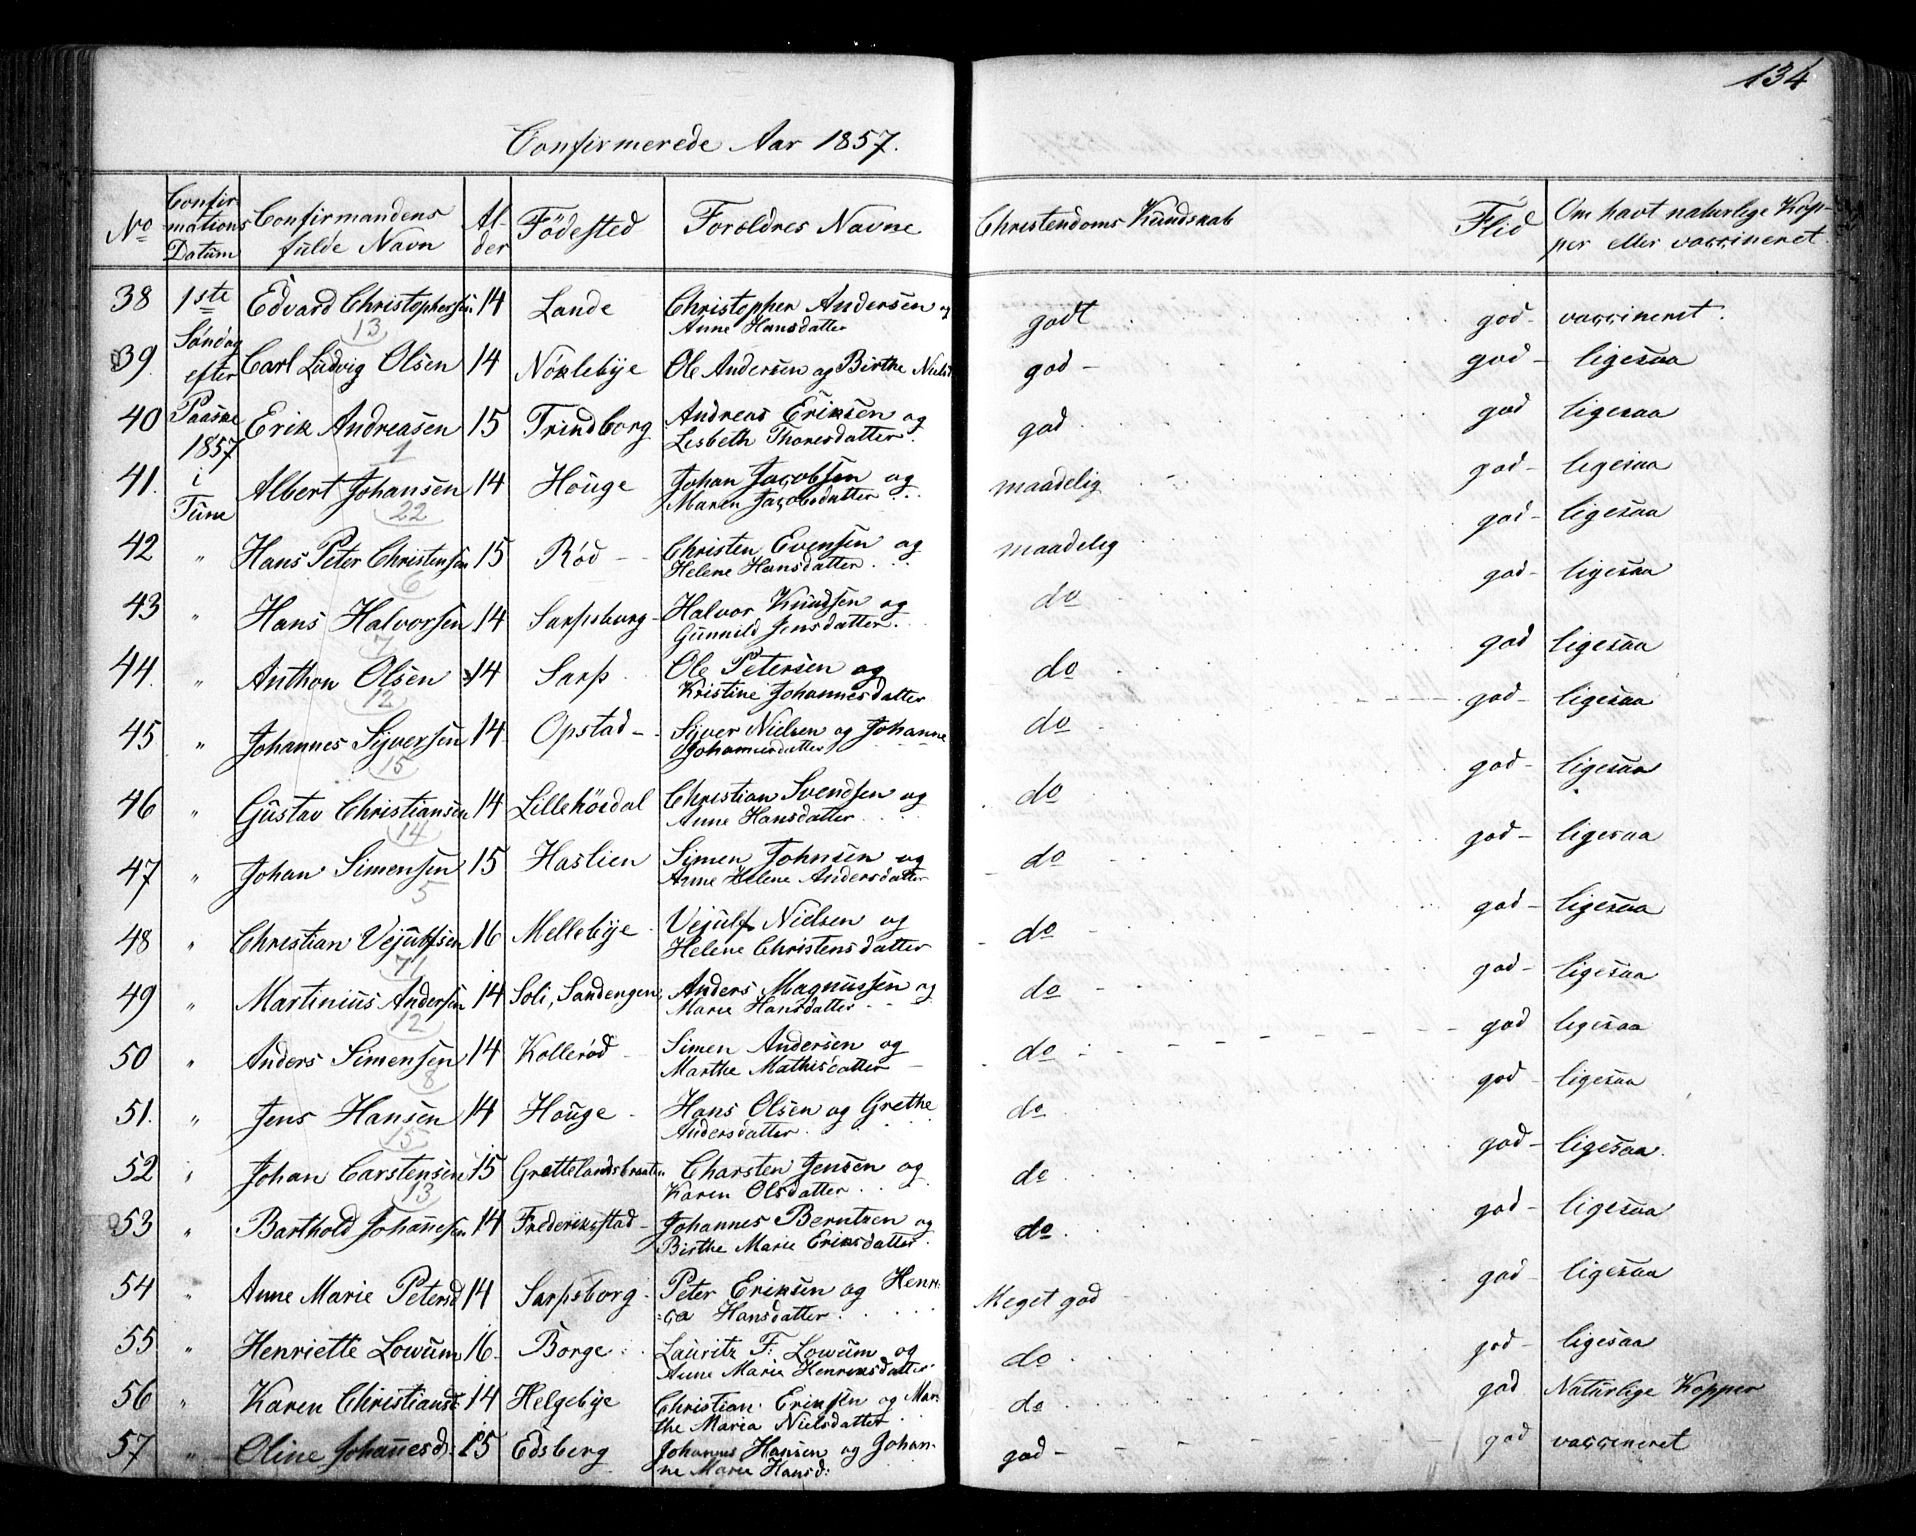 134
Confirmerede Aar 1857.
No
Confir-
mations
Datum
Confirmandens
fulde Navn
Al-
der
Födested
Foroldres Navne
Christendoms Kundskab
Flid
Om havt naturlige Kop-
per eller vaccineret.
38 1ste Edvard Christophersen 14 Lande Christopher Andersen og
Anne Hansdatter godt god- vaccineret.
13
39 Søndag efter Carl Ludvig Olsen 14 Nöklebÿe Ole Andersen og Birthe Nielsd god- god- ligesaa
40 Paaske 1857 Erik Andreasen 15 Trindborg Andreas Eriksen og
Lisbeth Thoresdatter. god god ligesaa
41. i Tune Albert Johansen 14 Houge Johan Jacobsen og
Maren Jacobsdatter maadelig god- ligesaa
22
42 " Hans Peter Christensen 15 Rød Christen Evensen og
Helene Hansdatter. maadelig god- ligesaa
6
43 " Hans Halvorsen 14 Sarpsburg Halvor Knudsen og
Gunnild Jensdatter. do god- ligesaa
7
44. " Anthon Olsen 14 Sarp Ole Petersen og
Kristine Johannesdatter do god ligesaa
12
45 " Johannes Sÿversen 14 Opstad Sÿver Nielsen og Johanne
Johannesdatter do god- ligesaa
15
46 " Gustav Christiansen 14 Lillehöidal Christian Svendsen og
Anne Hansdatter do god- ligesaa
14
47 " Johan Simensen 15 Haslien Simen Johnsen og
Anne Helene Andersdatter do god- ligesaa
5
48 " Christian Vejulfsen 16 Mellebÿe Vejulf Nielsen og
Helene Christensdatter do god- ligesaa
71
49 " Martinius Andersen 14 Soli, Sandengen Anders Magnussen og
Marie Hansdatter do god- ligesaa
12
50 " Anders Simensen 14 Kollerød Simen Andersen og
Marthe Mathisdatter do god ligesaa
8
51. " Jens Hansen 14 Houge Hans Olsen og Grethe
Andersdatter. do god- ligesaa
15
52 " Johan Carstensen 15 Grettelandsbraaten Charsten Jensen og
Karen Olsdatter do god- ligesaa.
13
53 " Barthold Johanesen 14 Frederikstad Johannes Berntzen og
Birthe Marie Eriksdatter. do god- ligesaa
54 " Anne Marie Petersd 14 Sarpsborg Peter Eriksen og Henri-
=ca Hansdatter. Meget god god ligesaa
55 " Henriette Lowum 16 Borge Lauritz F. Lowum og
Anne Marie Henriksdatter do god- ligesaa
56 " Karen Christiansd: 14 Helgebÿe Christian Eriksen og Mar-
the Maria Nielsdatter do god Naturlige Kopper
57 " Oline Johanesd: 15 Edsberg Johannes Hansen og Johan-
ne Marie Hansd: god- god vaccineret